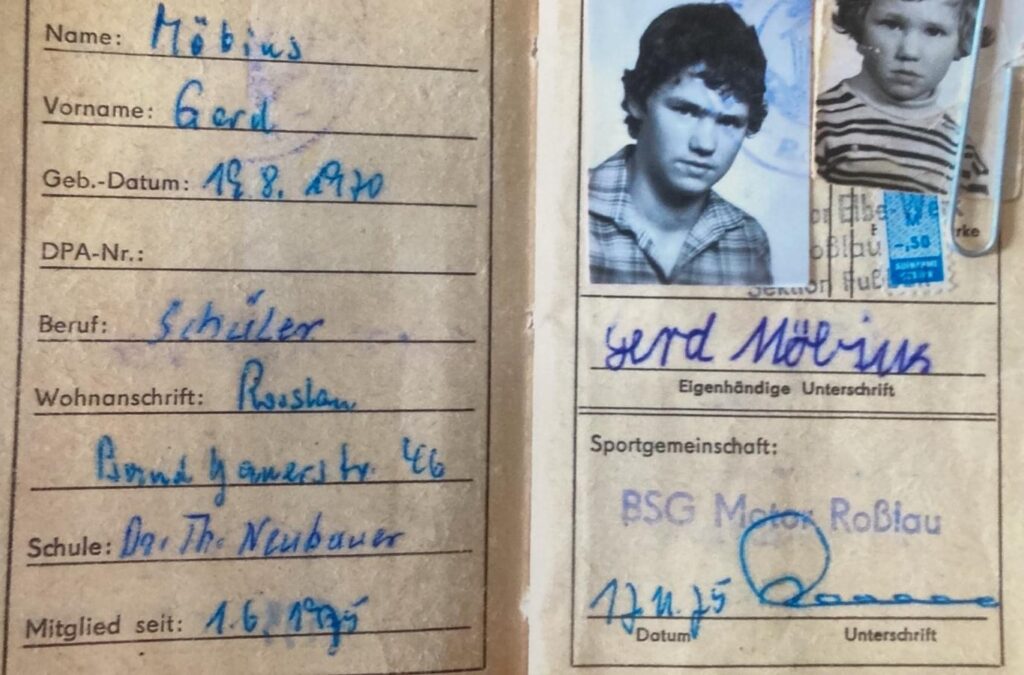 Name: Möbius
Vorname: Gerd
Geb.-Datum: 19.8. 1970
DPA-Nr.:
Beruf: Schüler
Wohnanschrift: Rosslau
46
Schule: Dr. Th. Neubauer
Mitglied seit: 1.6. 1975
-,50
Roßlau
Sektion Fuß
Gerd Möbius
Eigenhändige Unterschrift
Sportgemeinschaft:
BSG Motor Roßlau
17.11.75
Datum Unterschrift